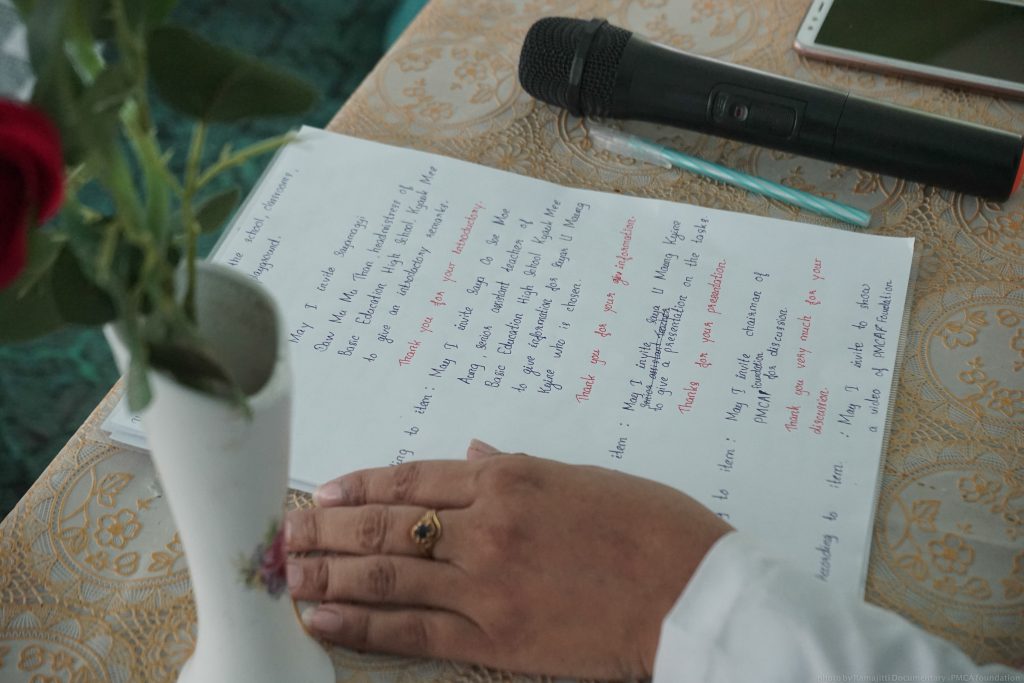 the school, classrooms,
playground.
May I invite Sayamagyi
Daw Mu Mu Than headmistress of
Basic Education High School Kyauk Mee
to give an introductory remarks.
Thank you for your Introductory.
to item: May I invite Saya Co See Moe
Aung, senior assistant teacher of
Basic Education High School Kyauk Mee
to give information for Sayar U Maung
Kyine who is chosen.
Thank you for your giv information.
item: May I invite Saya U Maung Kyine
Senior assistant teacher
to give a presentation on the tasks.
Thanks for your presentation
to item: May I invite chairman of
PMCAP Foundation for discussion
Thank you very much for your
discussion
According to item: May I invite to show
a video of PMCAP Foundation
photo by Ramajitti Documentary - PMCA foundation